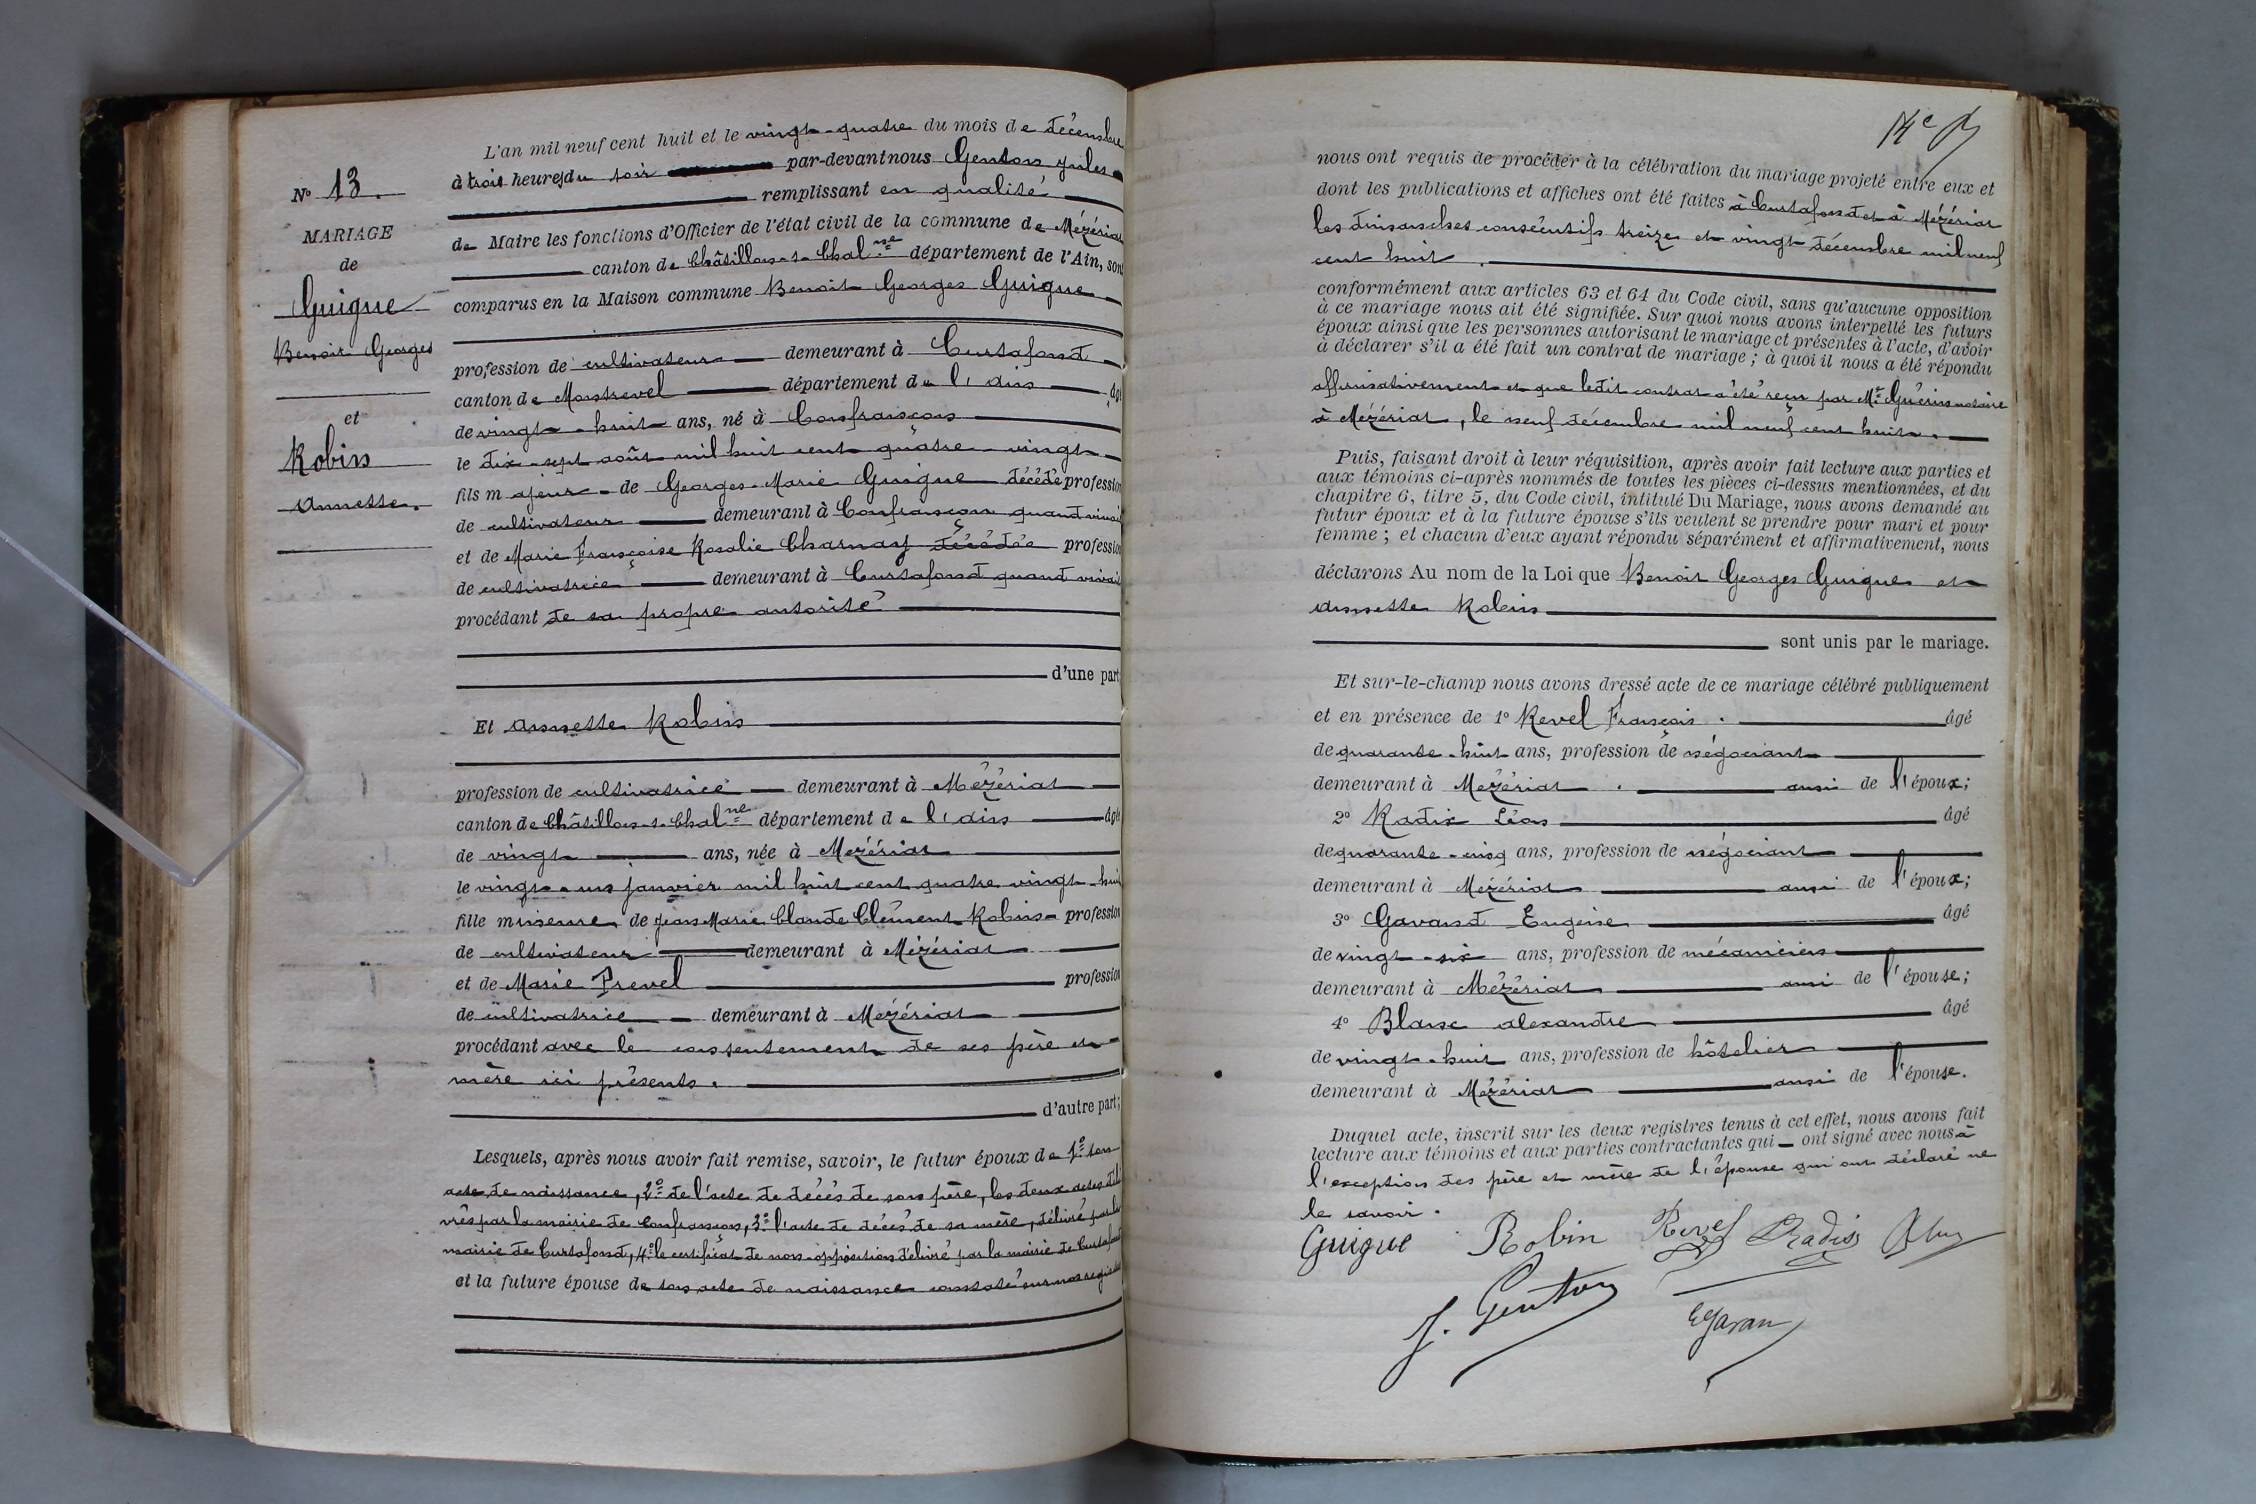 N° 13.
MARIAGE
de
Guigue
Benoit Georges
et
Robin
Annette.
L'an mil neuf cent huit et le vingt-quatre du mois de décembre
à trois heures du soir par-devant nous Genton Jules
remplissant en qualité
de Maire les fonctions d'Officier de l'état civil de la commune de Mézériat
canton de Châtillon-s-Chalne département de l'Ain, sont
comparus en la Maison commune Benoit Georges Guigue
profession de cultivateur demeurant à Curtafond
canton de Montrevel département de l'Ain âgé
de vingt-huit ans, né à Confrançon
le dix-sept août mil huit cent quatre-vingt
fils majeur de Georges-Marie Guigue décédé profession
de cultivateur demeurant à Confrançon quand vivait
et de Marie Françoise Rosalie Charnay décédée profession
de cultivatrice demeurant à Curtafond quand vivait
procédant de sa propre autorité
d'une part
Et Annette Robin
profession de cultivatrice demeurant à Mézériat
canton de Châtillon-s-Chalne département de l'Ain âgée
de vingt ans, née à Mézériat
le vingt-un janvier mil huit cent quatre vingt-huit
fille mineure de Jean Marie Claude Clément Robin profession
de cultivateur demeurant à Mézériat
et de Marie Prevel profession
de cultivatrice demeurant à Mézériat
procédant avec le consentement de ses père et
mère ici présents.
d'autre part;
Lesquels, après nous avoir fait remise, savoir, le futur époux de 1° son
acte de naissance, 2° de l'acte de décès de son père, les deux actes déli
vrés par la mairie de Confrançon, 3° l'acte de décès de sa mère, délivré par la
mairie de Curtafond, 4° le certificat de non-opposition délivré par la mairie de Curtafond
et la future épouse de son acte de naissance constaté sur nos registres
nous ont requis de procéder à la célébration du mariage projeté entre eux et
dont les publications et affiches ont été faites à Curtafond et à Mézériat
les dimanches consécutifs treize et vingt décembre mil neuf
cent huit.
conformément aux articles 63 et 64 du Code civil, sans qu'aucune opposition
à ce mariage nous ait été signifiée. Sur quoi nous avons interpellé les futurs
époux ainsi que les personnes autorisant le mariage et présentes à l'acte, d'avoir
à déclarer s'il a été fait un contrat de mariage; à quoi il nous a été répondu
affirmativement et que ledit contrat a été reçu par Me Guérin notaire
à Mézériat, le neuf décembre mil neuf cent huit.
Puis, faisant droit à leur réquisition, après avoir fait lecture aux parties et
aux témoins ci-après nommés de toutes les pièces ci-dessus mentionnées, et du
chapitre 6, titre 5, du Code civil, intitulé Du Mariage, nous avons demandé au
futur époux et à la future épouse s'ils veulent se prendre pour mari et pour
femme; et chacun d'eux ayant répondu séparément et affirmativement, nous
déclarons Au nom de la Loi que Benoit Georges Guigue et
Annette Robin
sont unis par le mariage.
Et sur-le-champ nous avons dressé acte de ce mariage célébré publiquement
et en présence de 1° Revel François. âgé
de quarante-huit ans, profession de négociant
demeurant à Mézériat. ami de l'époux;
2° Radix Léon âgé
de quarante-cinq ans, profession de négociant
demeurant à Mézériat ami de l'époux;
3° Gavand Eugène âgé
de vingt-six ans, profession de mécanicien
demeurant à Mézériat ami de l'épouse;
4° Blanc Alexandre âgé
de vingt-huit ans, profession de hôtelier
demeurant à Mézériat ami de l'épouse.
Duquel acte, inscrit sur les deux registres tenus à cet effet, nous avons fait
lecture aux témoins et aux parties contractantes qui ont signé avec nous à
l'exception des père et mère de l'épouse qui ont déclaré ne
le savoir.
Guigue Robin Revel Radix
J. Genton